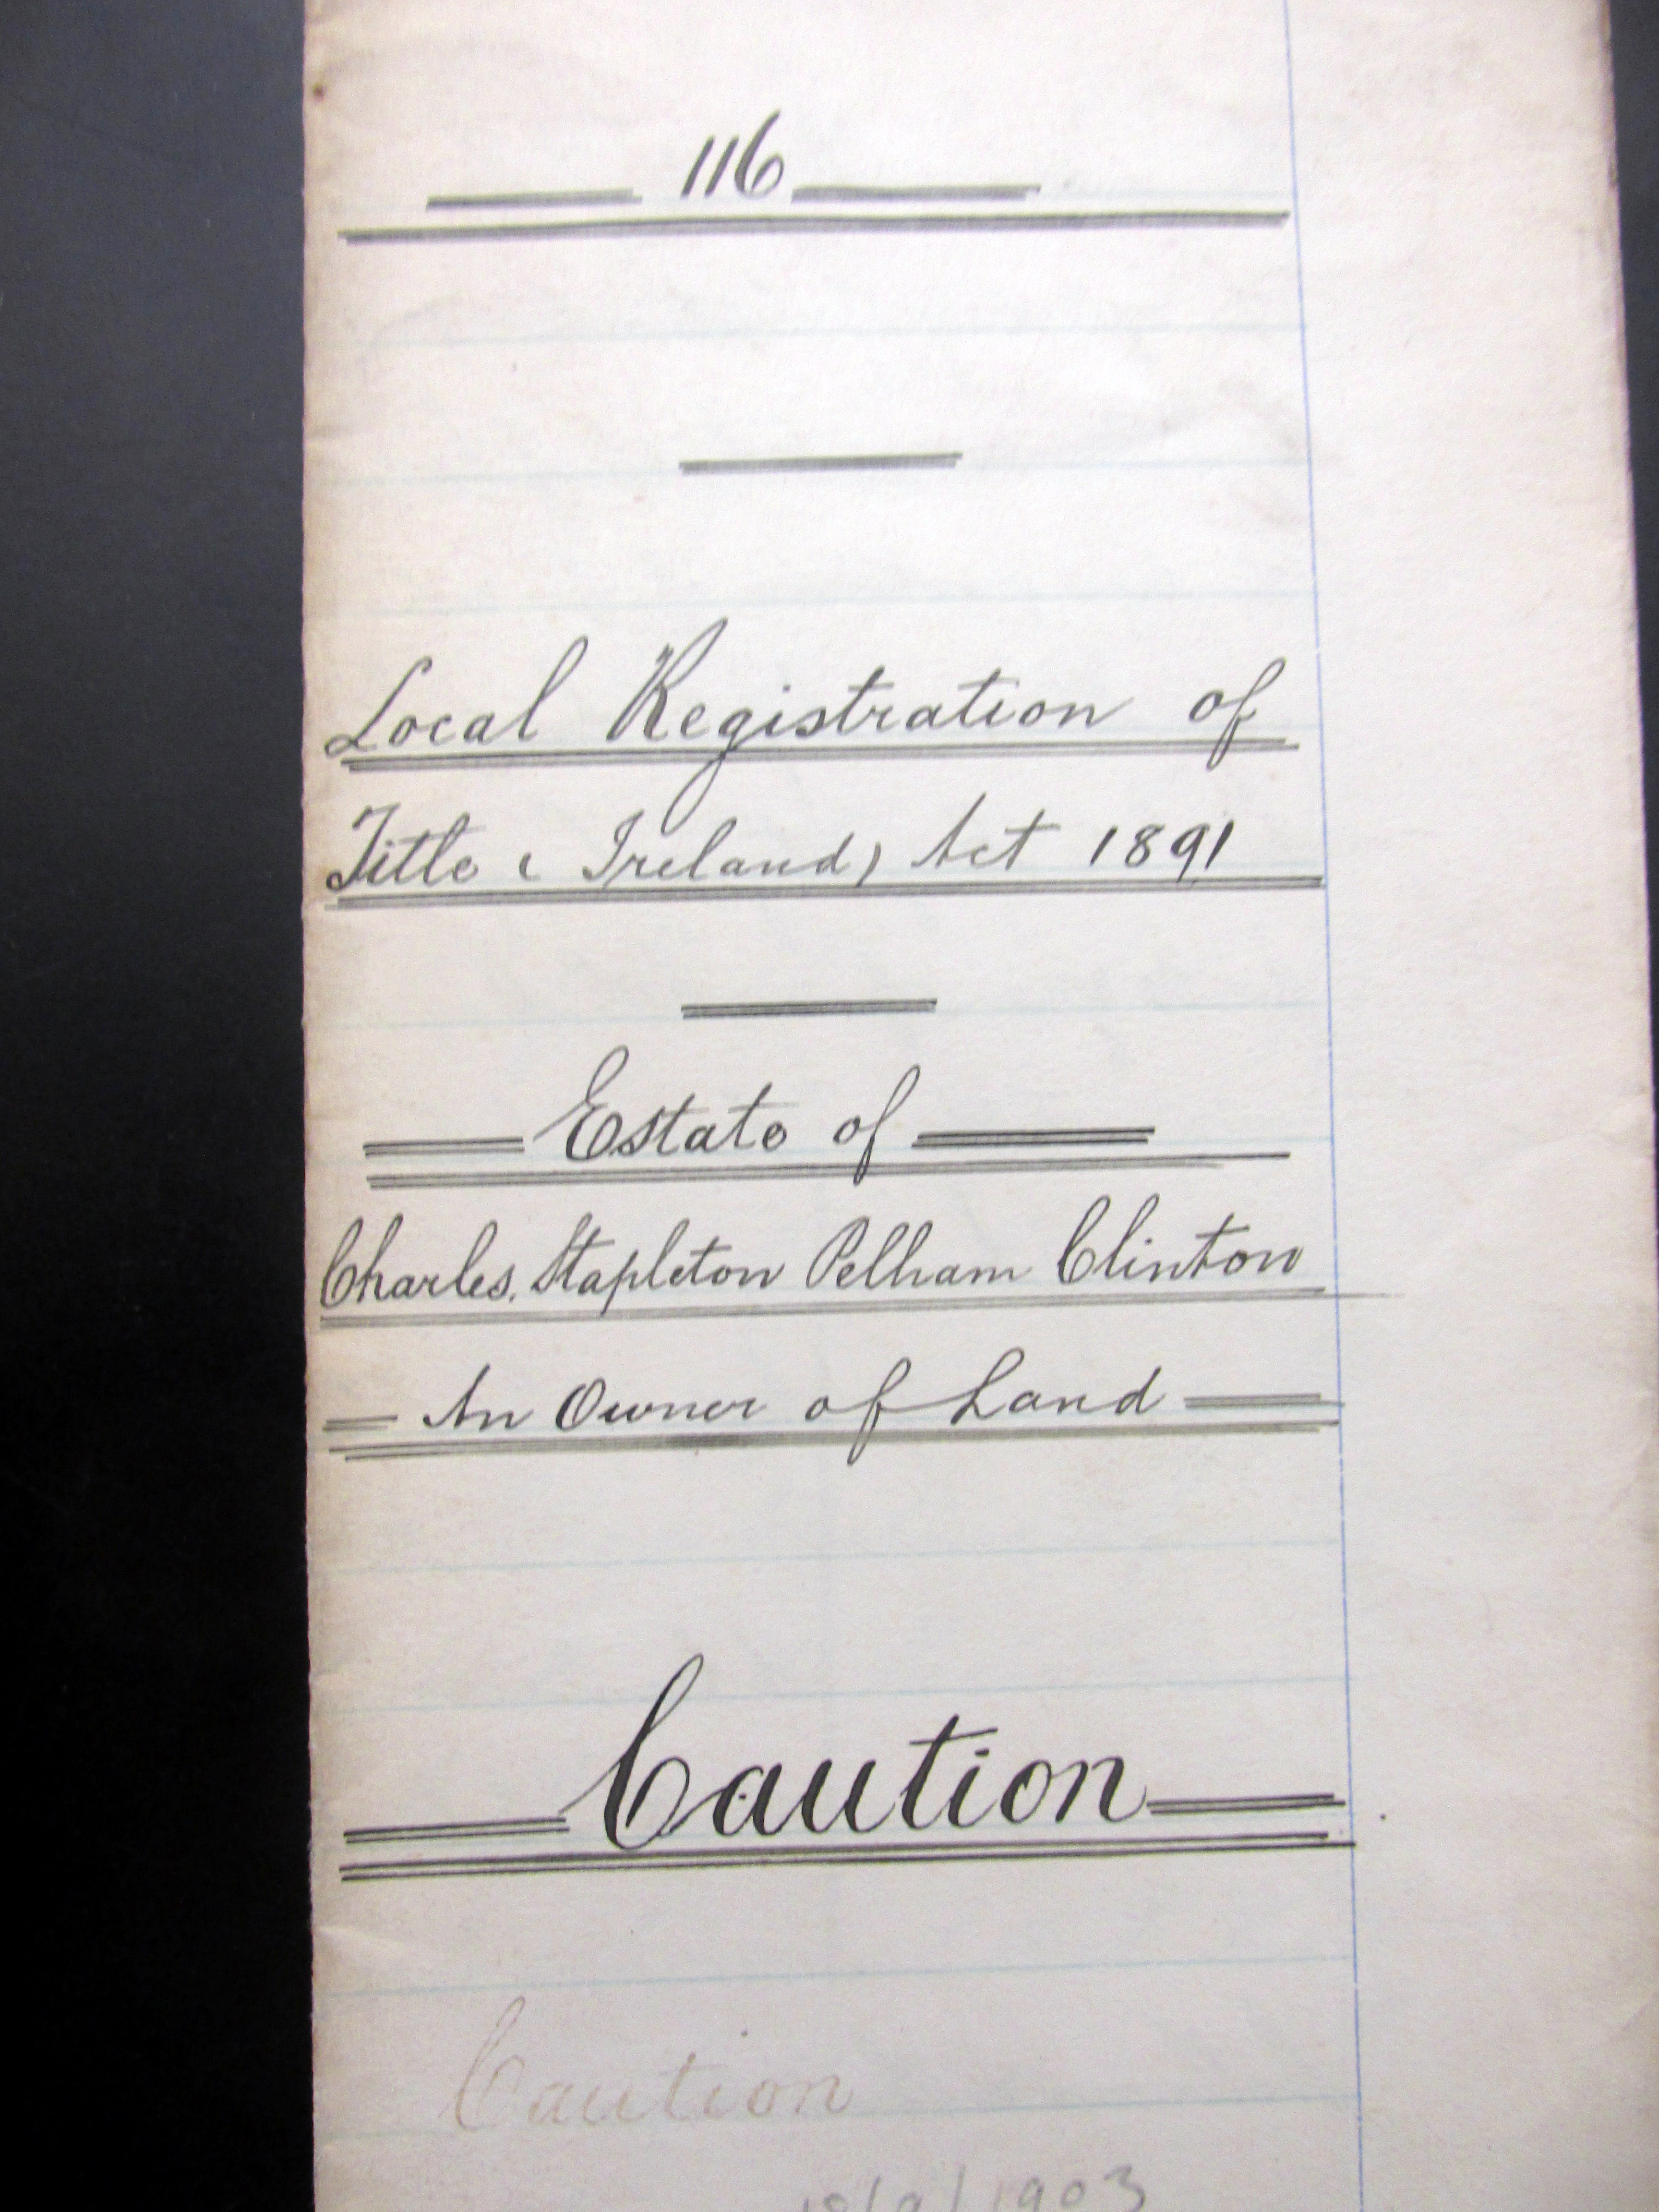 116
Local Registration of
Title (Ireland) Act 1891
Estate of
Charles Stapleton Pelham Clinton
An Owner of Land
Caution
Caution
1903